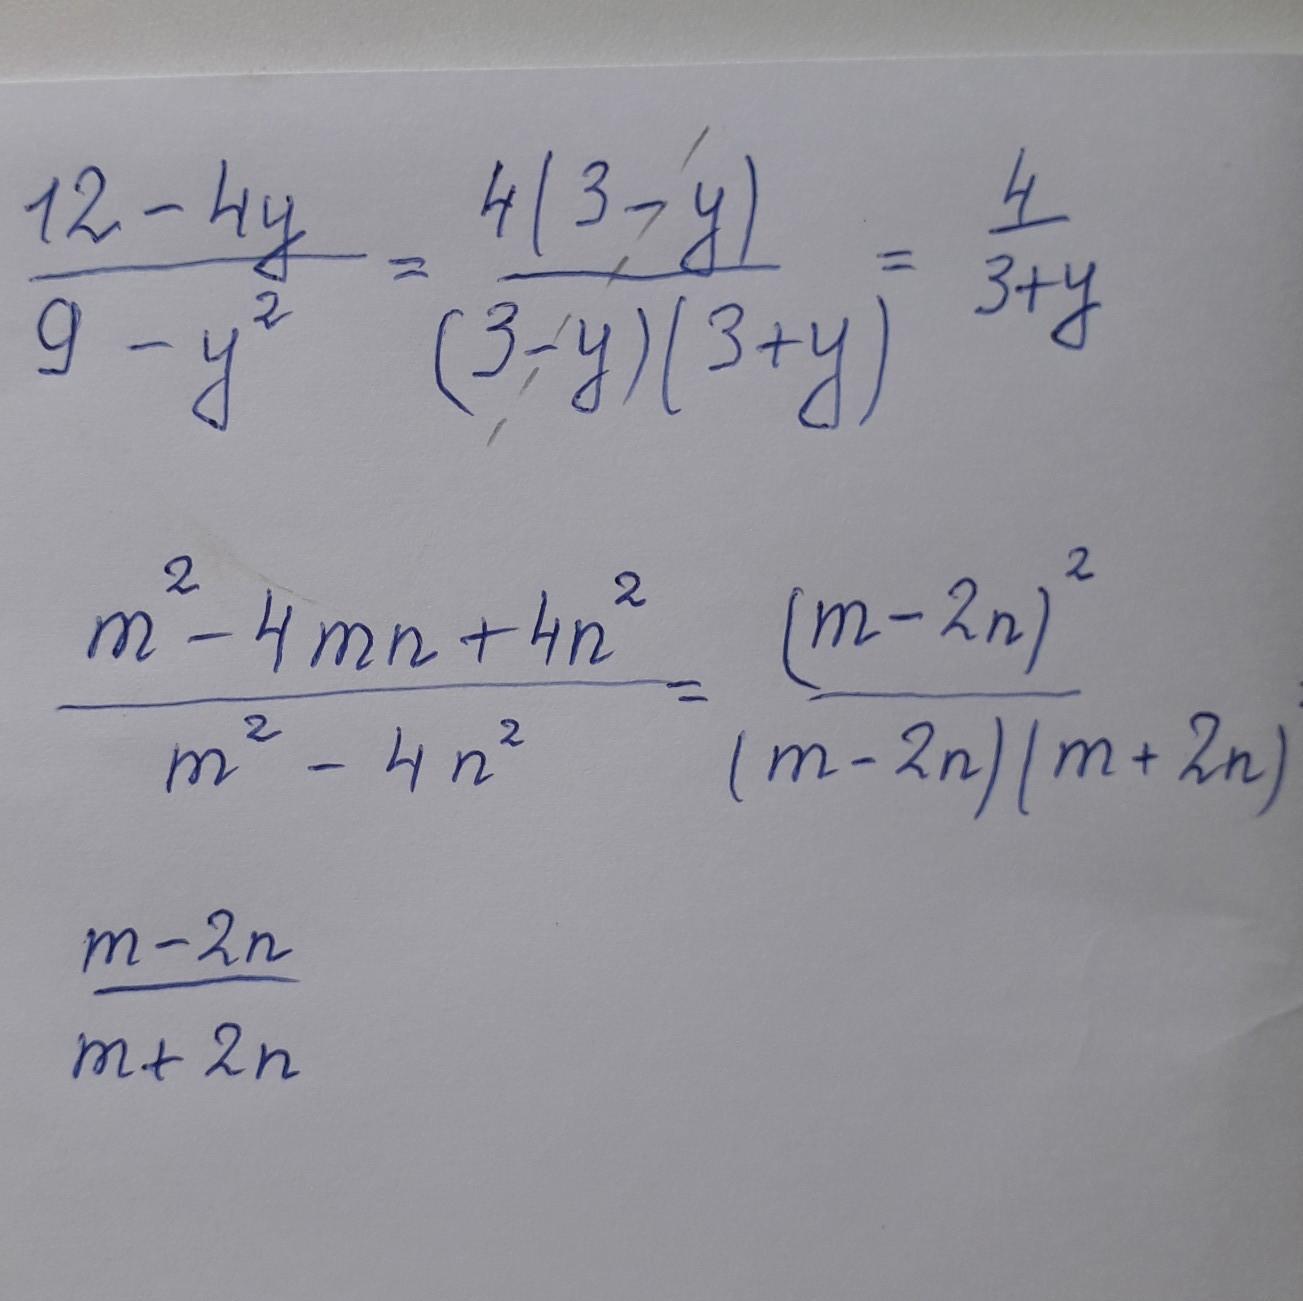 12 - 4y / 9 - y² = 4(3 - y) / (3 - y)(3 + y) = 4 / 3+y
m² - 4mn + 4n² / m² - 4n² = (m - 2n)² / (m - 2n)(m + 2n) =
m - 2n / m + 2n